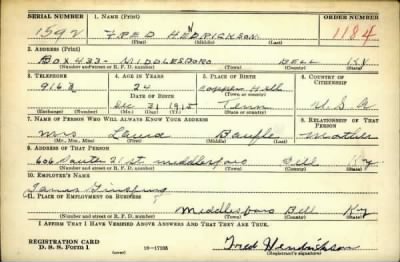 SERIAL NUMBER 1. NAME (Print) ORDER NUMBER
1592 FRED HENDRICKSON 1184
(First) (Middle) (Last)
2. ADDRESS (Print)
BOX 433 - MIDDLESBORO BELL KY
(Number and street or R. F. D. number) (Town) (County) (State)
3. TELEPHONE 4. AGE IN YEARS 5. PLACE OF BIRTH 6. COUNTRY OF CITIZENSHIP
916J 24
DATE OF BIRTH
Dec 31 1915 Tenn U. S. A
(Exchange) (Number) (Mo.) (Day) (Yr.) (State or country)
7. NAME OF PERSON WHO WILL ALWAYS KNOW YOUR ADDRESS 8. RELATIONSHIP OF THAT PERSON
Mrs Laura Mother
(Mr., Mrs., Miss) (First) (Middle) (Last)
9. ADDRESS OF THAT PERSON
606 South 21 st. Middlesboro Bell Ky
(Number and street or R. F. D. number) (Town) (County) (State)
10. EMPLOYER'S NAME
11. PLACE OF EMPLOYMENT OR BUSINESS
Middlesboro Bell Ky
(Number and street or R. F. D. number) (Town) (County) (State)
I AFFIRM THAT I HAVE VERIFIED ABOVE ANSWERS AND THAT THEY ARE TRUE.
REGISTRATION CARD
D. S. S. Form 1 16-17105 Fred Hendrickson
(Registrant's signature)